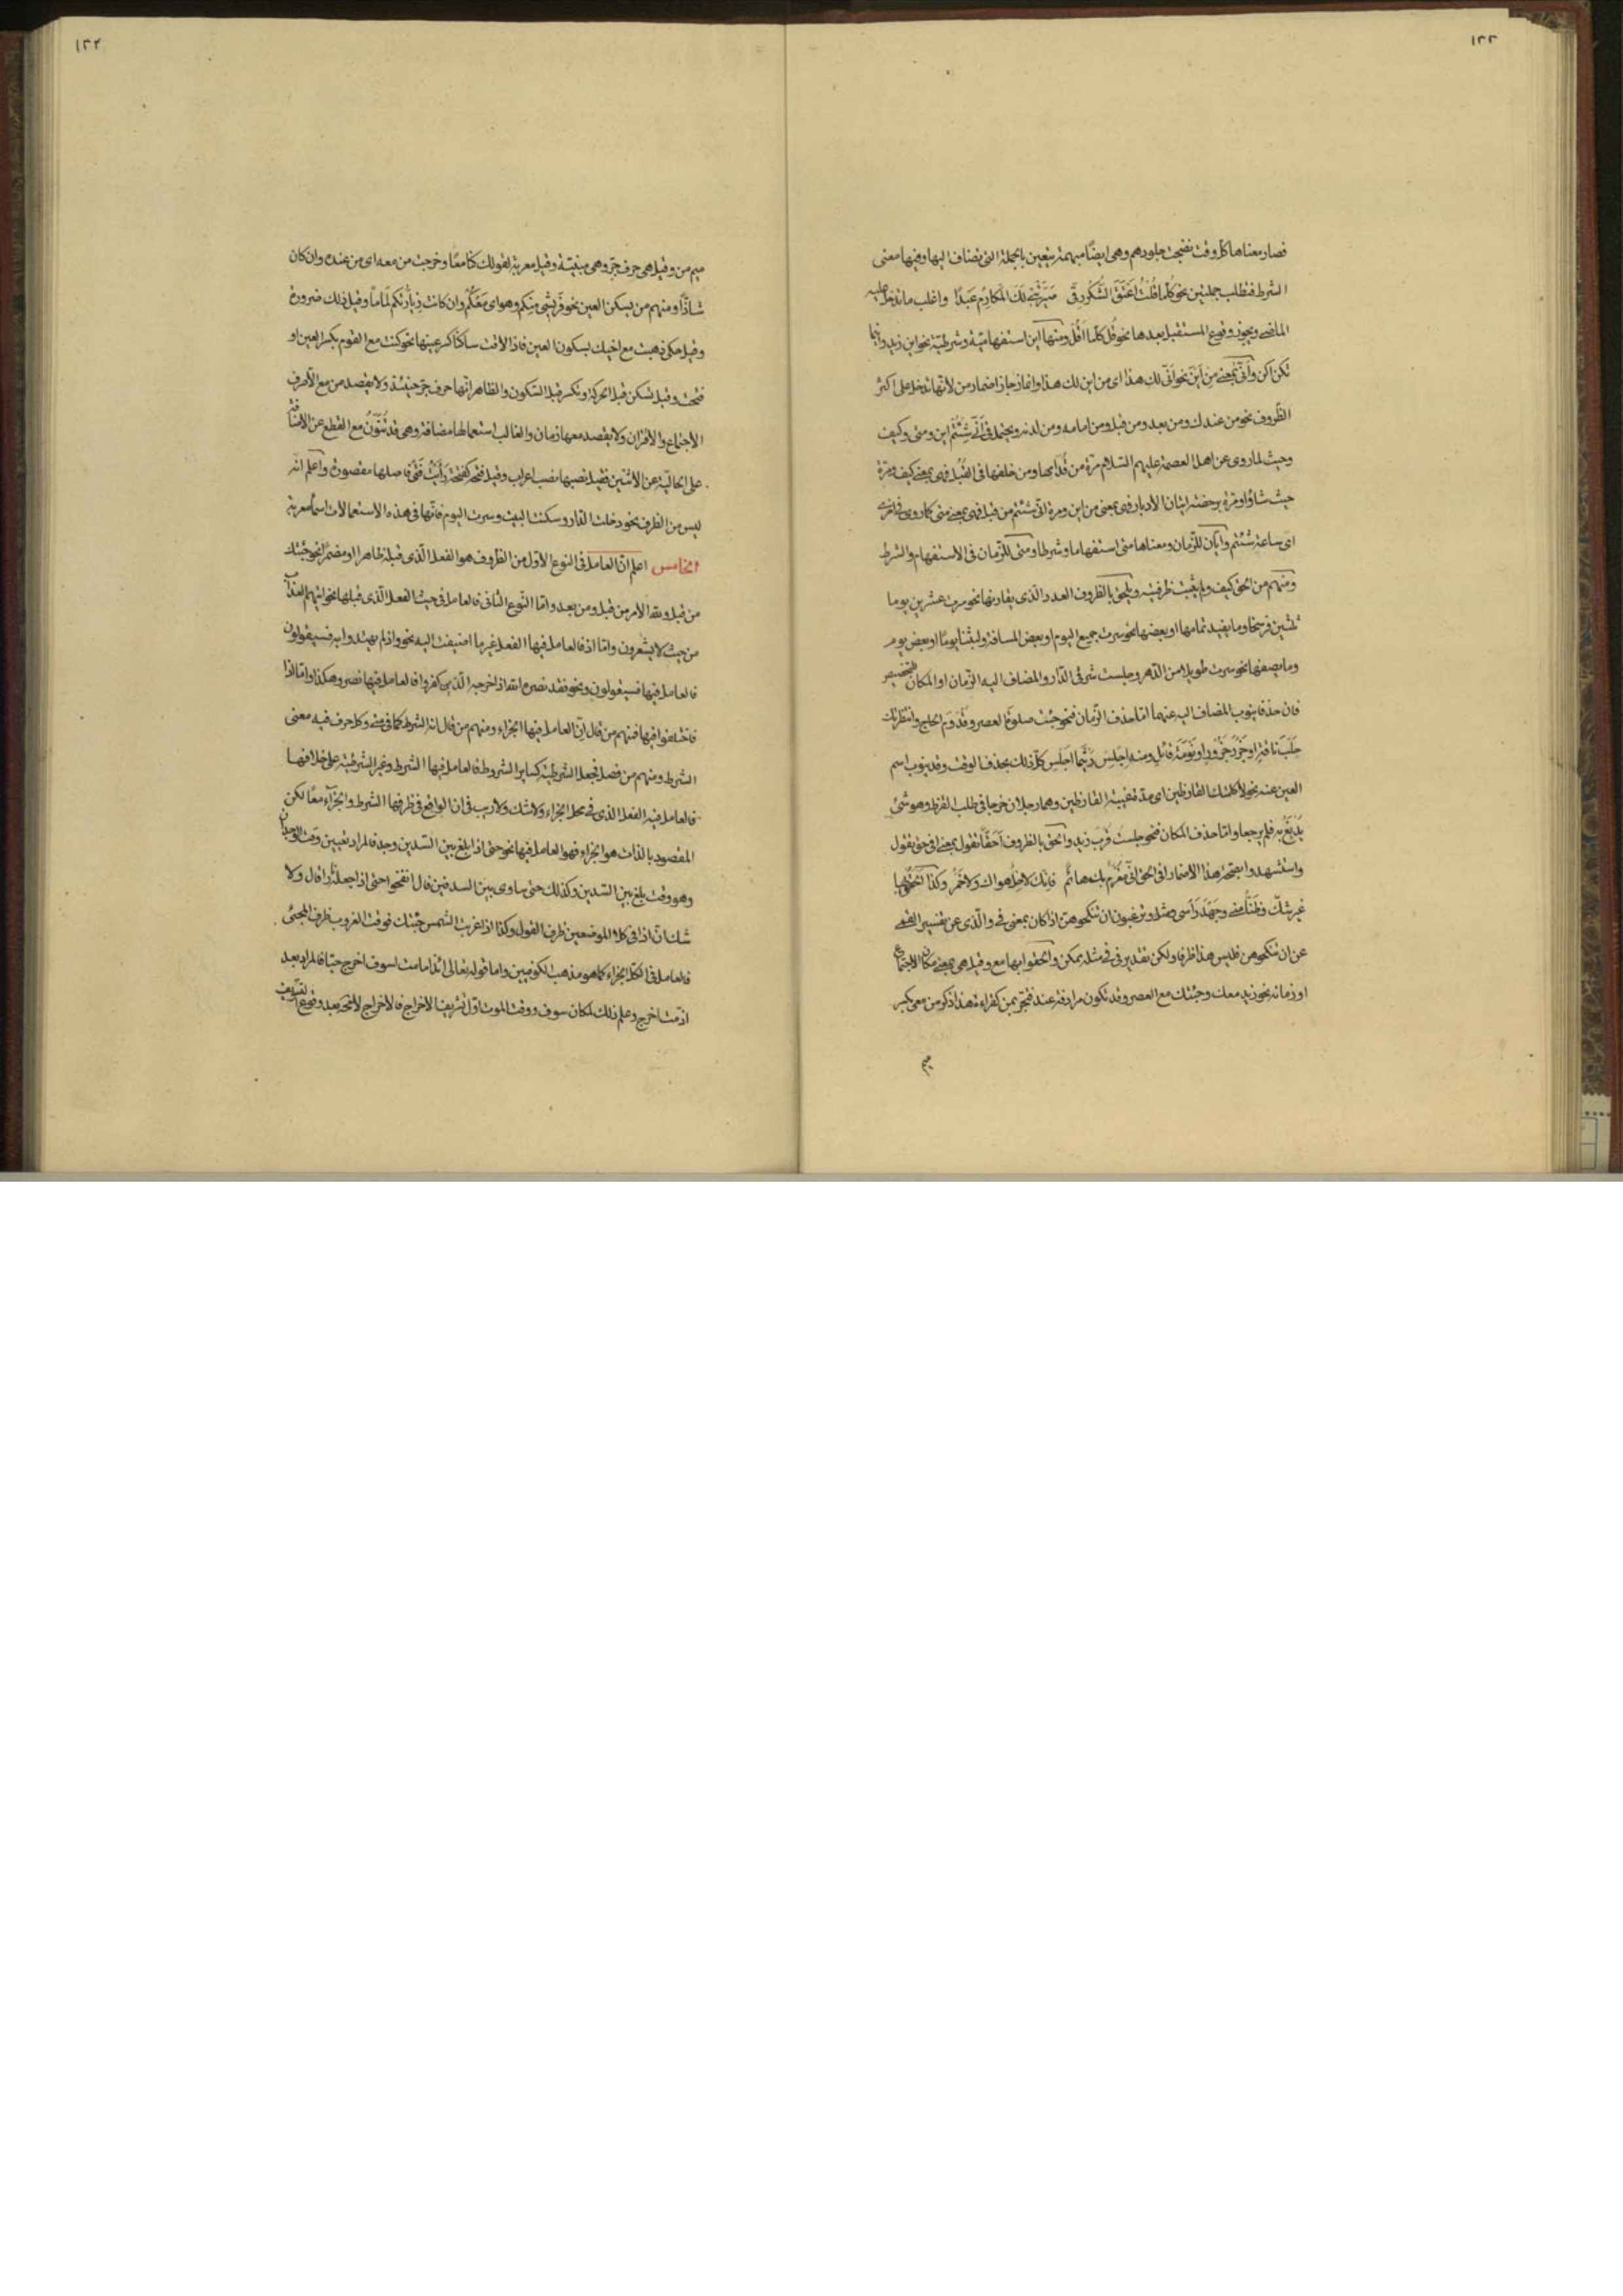 ١٣٣
فصار معناها كلّ وقت نضجت جلودهم وهى ايضًا مبهمة يتعين بالجملة التى تضاف اليها وفيها معنى
الشرط فتطلب جملتين نحو كلّما قلت اعتق الشكر رقّى صيّرتنى لك المكارم عبدًا واغلب ما تدخل عليه
الماضى ويجوز وقوع المستقبل بعدها نحو قل كلّما اقل ومنها اين استفهاميّة وشرطيّة نحو اين زيد واينما
تكن اكن وانّى بمعنى من اين نحو انّى لك هذا اى من اين لك هذا وانما جاز اضمار من لانها تدخل على اكثر
الظروف نحو من عندك ومن بعد ومن قبل ومن امامه ومن لدنه ويحتمل فى انّى شئتم اين ومتى وكيف
وحيث لما روى عن اهل العصمة عليهم السلام مرّة من قدّامها ومن خلفها فى القبل فهى بمعنى كيف ومرّة
حيث شاؤا ومرّة برخصة اتيان الادبار فهى بمعنى من اين ومرة انّى شئتم من قبل فهى بمعنى متى كما روى فى اخرى
اى ساعة شئتم وايّان للزّمان ومعناها متى استفهاما وشرطا ومتى للزّمان فى الاستفهام والشرط
ومنهم من الحق كيف ولم يثبت ظرفيته ويلحق بالظروف العدد الّذى يقارنها نحو سرت عشرين يوما
ثلثين فرسخا وما يفيد تمامها او بعضها نحو سرت جميع اليوم او بعض المسافة ولبثنا يومًا او بعض يوم
وما يصفها نحو سرت طويلا من الدّهر وجلست شرقى الدّار والمضاف اليه الزّمان او المكان
فان حذفا ينوب المضاف اليه عنهما امّا حذف الزّمان فنحو جئت صلوة العصر وقدوم الحاج وانتظرتك
حلب ناقة او جزر جزور او نومة قائل ومنه اجلس ريّثما اجلس كلّ ذلك بحذف الوقت وقد ينوب اسم
العين عنه نحو لا كلّمتك القارظين اى مدّة غيبة القارظين وهما رجلان خرجا فى طلب القرظ وهو شئ
يدبغ به فلم يرجعا وامّا حذف المكان فنحو جلست قرب زيد والحق بالظروف احقّا تقول بمعنى افى حق تقول
واستشهدوا بصحّة هذا الاضمار افى الحق انّى مغرم بك هائم فانك لا خلّ هواك ولا خمر وكذا الحق بها
غير شكّ وظنًّا منى وجهد رأسى ومثل وترغبون ان تنكحوهنّ اذا كان بمعنى فى والّذى عن تفسير
عن ان تنكحوهن فليس هذا ظرفا ولكن تقدير فى فى مثله يمكن والحقوا بها مع وقيل هى بمعنى مكان الاجتماع
او زمانه نحو زيد معك وجئتك مع العصر وقد تكون مرادفة عند فتجر بمن كقراءة هذا ذكر من معى بكسر
ميم
١٣٤
ميم من وقيل هى حرف جرّ وهى مبنيّة وقيل معربة لقولك كنّا معًا وخرجت من معه اى من عنده وان كان
شاذّا ومنهم من يسكن العين نحو فريشى منكم وهواى معكم وان كانت زيارتكم لماما وقيل ذلك ضرورة
وقيل حكى ذهبت مع اخيك بسكون العين فاذا لاقت ساكنًا كسر عينها نحو كنت مع القوم بكسر العين او
فتحت وقيل تسكن قبل الحركة وتكسر قبل السّكون والظاهر انّها حرف جرّ حينئذ ولا يقصد من مع الّا صرف
الاجتماع والاقتران ولا يقصد معها زمان والغالب استعمالها مضافة وهى قد تنوّن مع القطع عن الاضافة
على الحاليّة عن الاثنين فقيل نصبها نصب اعراب وقيل فتحه كفتحة رأيت فتى فاصلها مقصورة واعلم انّه
ليس من الظرف نحو دخلت الدّار وسكنت البيت وسرت اليوم فانّها فى هذه الاستعمالات اسماء معربة
الخامس اعلم انّ العامل فى النوع الاوّل من الظروف هو الفعل الّذى قبله ظاهرا او مضمرًا نحو جئتك
من قبل ولله الامر من قبل ومن بعد وامّا النّوع الثّانى فالعامل فى حيث الفعل الّذى قبلها نحو اتيهم العذاب
من حيث لا يشعرون وامّا اذ فالعامل فيها الفعل غير ما اضيفت اليه نحو واذ لم يهتدوا به فسيقولون
فالعامل فيها فسيقولون ونحو فقد نصره الله اذ اخرجه الّذين كفروا فالعامل فيها نصر وهكذا وامّا اذا
فاختلفوا فيها فمنهم من قال انّ العامل فيها الجزاء ومنهم من قال انه الشرط كما فى متى وكل حرف فيه معنى
الشرط ومنهم من فصل فجعل الشرطيّة كساير الشروط فالعامل فيها الشرط وغير الشرطيّة على خلافها
فالعامل فيه الفعل الذى فى محل الجزاء ولا شك ولا ريب فى ان الواقع فى ظرفها الشرط والجزاء معًا لكن
المقصود بالذات هو الجزاء فهو العامل فيها نحو حتى اذا بلغ بين السّدين وجد فالمراد تعيين وقت الوجدان
وهو وقت بلغ بين السّدين وكذلك حتى ساوى بين السدفين قال انفخوا حتى اذا جعله نارا قال ولا
شك انّ اذا فى كلا الموضعين ظرف القول وكذا اذا غربت الشمس جئتك فوقت الغروب ظرف المجئى
فالعامل فى الكلّ الجزاء كما هو مذهب الكوفيين واما قوله تعالى ائذا ما مت لسوف اخرج حيّا فالمراد بعد
اذ مت اخرج وعلم ذلك لمكان سوف ووقت الموت اوّل تشريف الاخراج فالاخراج لا تصحّ بعد وقوع التشريف